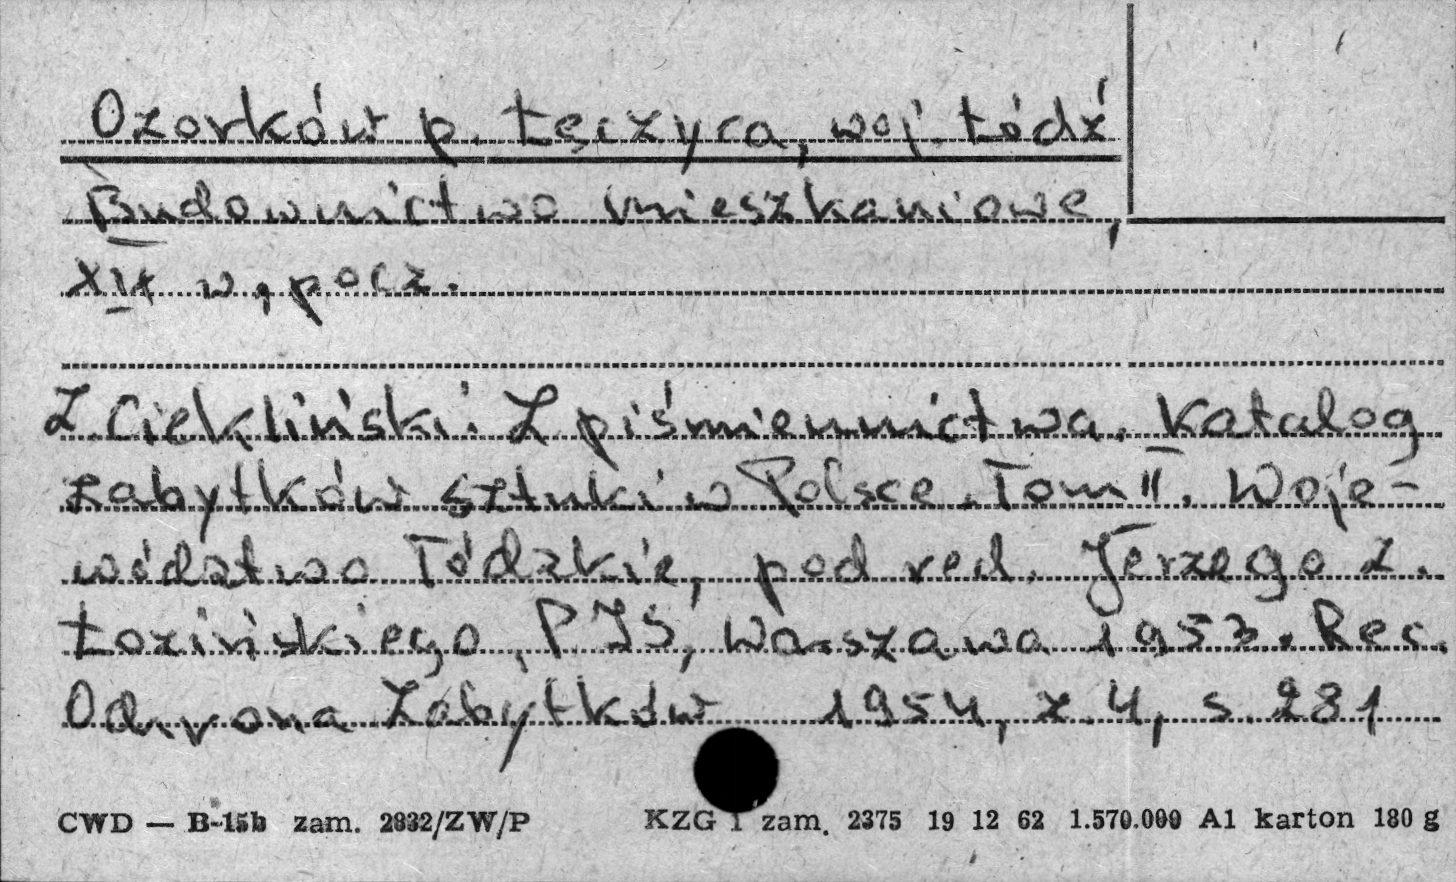 Ozorków p. Łęczyca, woj. Łódź
Budownictwo mieszkaniowe,
XIX w., pocz.
Z. Ciekliński: Z piśmiennictwa. Katalog
zabytków sztuki w Polsce. Tom II. Woje-
wództwo Łódzkie, pod red. Jerzego Z.
Łozińskiego, PIS, Warszawa 1953. Rec.
Ochrona Zabytków 1954, z. 4, s. 281
CWD — B-15b zam. 2932/ZW/P KZG 1 zam. 2375 19 12 62 1.570.000 A1 karton 180 g